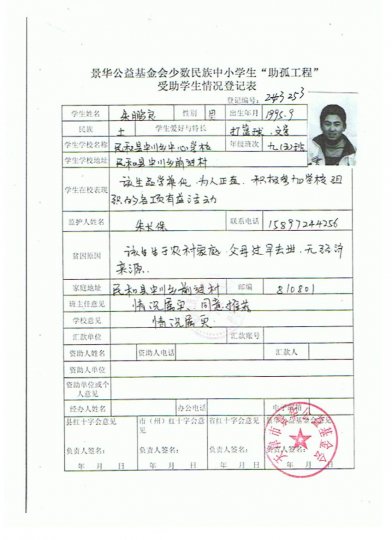 景华公益基金会少数民族中小学生“助孤工程”
受助学生情况登记表
登记编号: 2#3253
学生姓名 朱鹏 性别 男 出生年月 1995.9
民族 土 学生爱好与特长 打篮球、文学
学生学校名称 民和县中川乡中心学校 年级班次 九(3)班
学生学校地址 民和县中川乡前进村
学生在校表现 该生品学兼优,为人正直,积极参加学校组
织的各项有益活动
监护人姓名 朱长保 联系电话 15897244256
贫困原因 该生生于农村家庭,父母过早去世,无经济
来源.
家庭地址 民和县中川乡前进村 邮编 810801
班主任意见 情况属实、同意推荐
学校意见 情况属实
汇款单位 汇款账号
资助人姓名 资助人电话 汇款人
资助人单位
资助单位或个
人意见
经办人姓名 办公电话 电子邮箱
县红十字会意见 市(州)红十字会意见 省红十字会意见
负责人签名: 负责人签名: 负责人签名: 负责人签名:
年 月 日 年 月 日 年 月 日 年 月 日